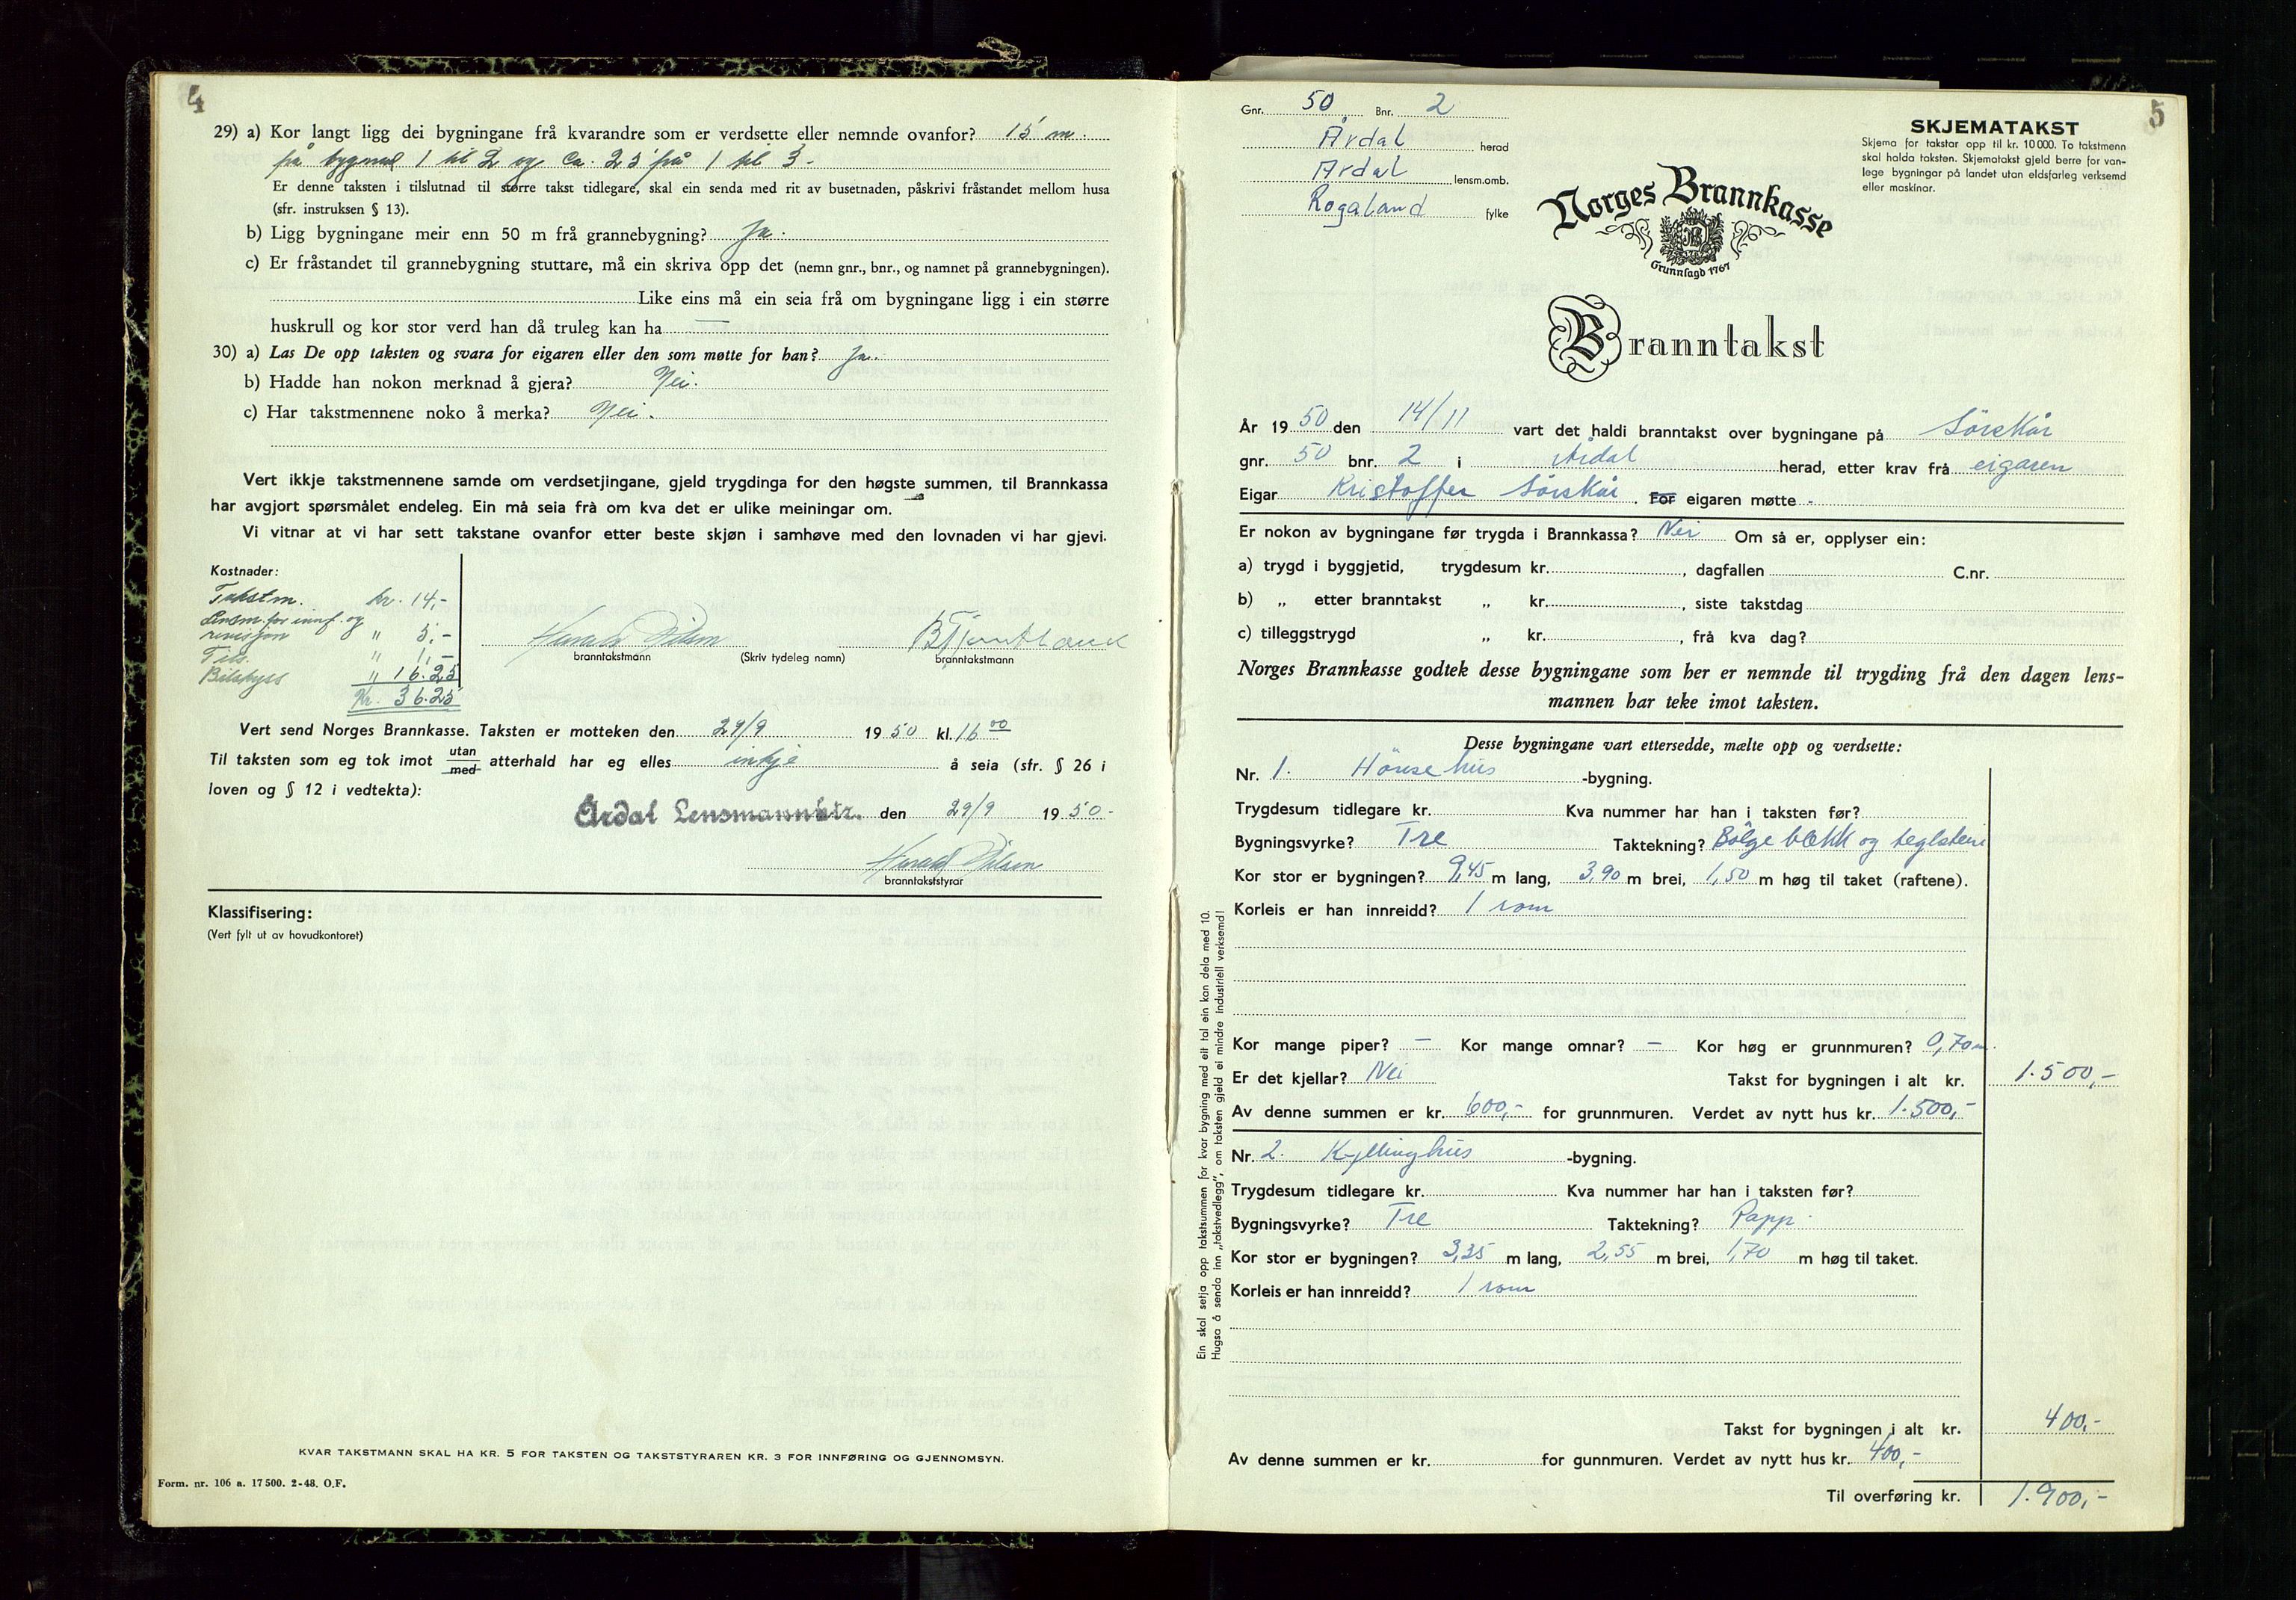 4
29) a) Kor langt ligg dei bygningane frå kvarandre som er verdsette eller nemnde ovanfor? 15 m.
frå bygnad 1 til 2 og ca. 25 frå 1 til 3.
Er denne taksten i tilslutnad til større takst tidlegare, skal ein senda med rit av busetnaden, påskrivi fråstandet mellom husa
(sfr. instruksen § 13).
b) Ligg bygningane meir enn 50 m frå grannebygning? Ja.
c) Er fråstandet til grannebygning stuttare, må ein skriva opp det (nemn gnr., bnr., og namnet på grannebygningen).
Like eins må ein seia frå om bygningane ligg i ein større
huskrull og kor stor verd han då truleg kan ha —
30) a) Las De opp taksten og svara for eigaren eller den som møtte for han? Ja.
b) Hadde han nokon merknad å gjera? Nei.
c) Har takstmennene noko å merka? Nei.
Vert ikkje takstmennene samde om verdsetjingane, gjeld trygdinga for den høgste summen, til Brannkassa
har avgjort spørsmålet endeleg. Ein må seia frå om kva det er ulike meiningar om.
Vi vitnar at vi har sett takstane ovanfor etter beste skjøn i samhøve med den lovnaden vi har gjevi.
Kostnader:
Takstm. kr. 14,-
Lensm. for innf. og
revisjon " 5,-
" 1,-
Bilskyss " 16.25
Kr. 36.25
Harald Nilsen
branntakstmann (Skriv tydeleg namn) branntakstmann
Vert send Norges Brannkasse. Taksten er motteken den 29/9 1950 kl. 16 00
Til taksten som eg tok imot utan/med atterhald har eg elles inkje å seia (sfr. § 26 i
loven og § 12 i vedtekta):
Årdal Lensmannktr. den 29/9 1950.
Harald Nilsen
branntakststyrar
Klassifisering:
(Vert fylt ut av hovudkontoret)
KVAR TAKSTMANN SKAL HA KR. 5 FOR TAKSTEN OG TAKSTSTYRAREN KR. 3 FOR INNFØRING OG GJENNOMSYN.
Form. nr. 106 a. 17500. 2-48. O.F.
5
Gnr. 50 Bnr. 2
Årdal herad
Årdal lensm.omb.
Rogaland fylke
SKJEMATAKST
Skjema for takstar opp til kr. 10 000. To takstmenn
skal halda taksten. Skjematakst gjeld berre for van-
lege bygningar på landet utan eldsfarleg verksemd
eller maskinar.
Norges Brannkasse
Grunnlagd 1767
Branntakst
År 1950 den 14/11 vart det haldi branntakst over bygningane på Sörskår
gnr. 50 bnr. 2 i Årdal herad, etter krav frå eigaren
Eigar Kristoffer Sörskår. For eigaren møtte -
Er nokon av bygningane før trygda i Brannkassa? Nei Om så er, opplyser ein:
a) trygd i byggjetid, trygdesum kr. , dagfallen C.nr.
b) „ etter branntakst „ kr. , siste takstdag
c) tilleggstrygd „ kr. , frå kva dag?
Norges Brannkasse godtek desse bygningane som her er nemnde til trygding frå den dagen lens-
mannen har teke imot taksten.
Desse bygningane vart ettersedde, mælte opp og verdsette:
Nr. 1. Hönsehus -bygning.
Trygdesum tidlegare kr. Kva nummer har han i taksten før?
Bygningsvyrke? Tre Taktekning? Bölgeblekk og teglstein
Kor stor er bygningen? 9,45 m lang, 3,90 m brei, 1,50 m høg til taket (raftene).
Korleis er han innreidd? 1 rom
Kor mange piper? — Kor mange omnar? — Kor høg er grunnmuren? 0,70 m.
Er det kjellar? Nei Takst for bygningen i alt kr. 1.500,-
Av denne summen er kr. 600,- for grunnmuren. Verdet av nytt hus kr. 1.500,-
Nr. 2. Kyllinghus -bygning.
Trygdesum tidlegare kr. Kva nummer har han i taksten før?
Bygningsvyrke? Tre Taktekning? Papp.
Kor stor er bygningen? 3,35 m lang, 2,55 m brei, 1,70 m høg til taket.
Korleis er han innreidd? 1 rom
Takst for bygningen i alt kr. 400,-
Av denne summen er kr. for gunnmuren. Verdet av nytt hus kr. 400,-
Til overføring kr. 1.900,-
Ein skal setja opp takstsummen for kvar bygning med eit tal ein kan dela med 10.
Hugsa å senda inn „takstvedlegg", om taksten gjeld ei mindre industriell verksemd!